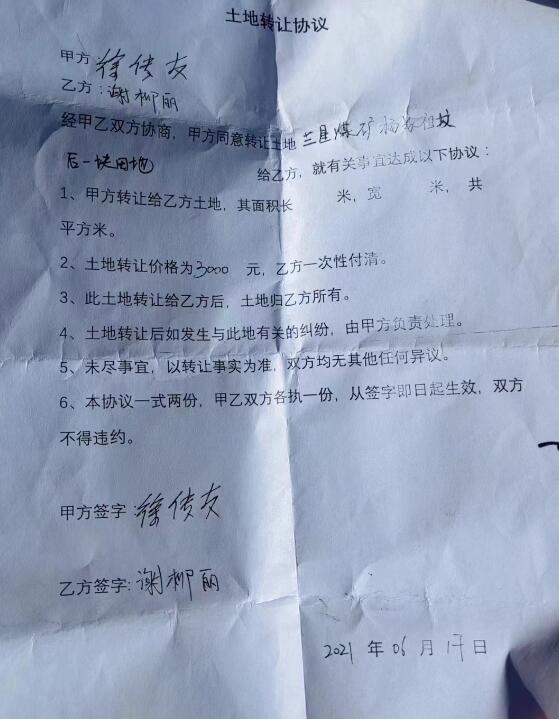 土地转让协议
甲方 徐传友
乙方：谢柳丽
经甲乙双方协商，甲方同意转让土地 兰星煤矿杨家祖坟
后一块田地 给乙方，就有关事宜达成以下协议：
1、甲方转让给乙方土地，其面积长 米，宽 米，共
平方米。
2、土地转让价格为3000 元，乙方一次性付清。
3、此土地转让给乙方后，土地归乙方所有。
4、土地转让后如发生与此地有关的纠纷，由甲方负责处理。
5、未尽事宜，以转让事实为准，双方均无其他任何异议。
6、本协议一式两份，甲乙双方各执一份，从签字即日起生效，双方
不得违约。
甲方签字：徐传友
乙方签字：谢柳丽
2021 年 06 月 17 日